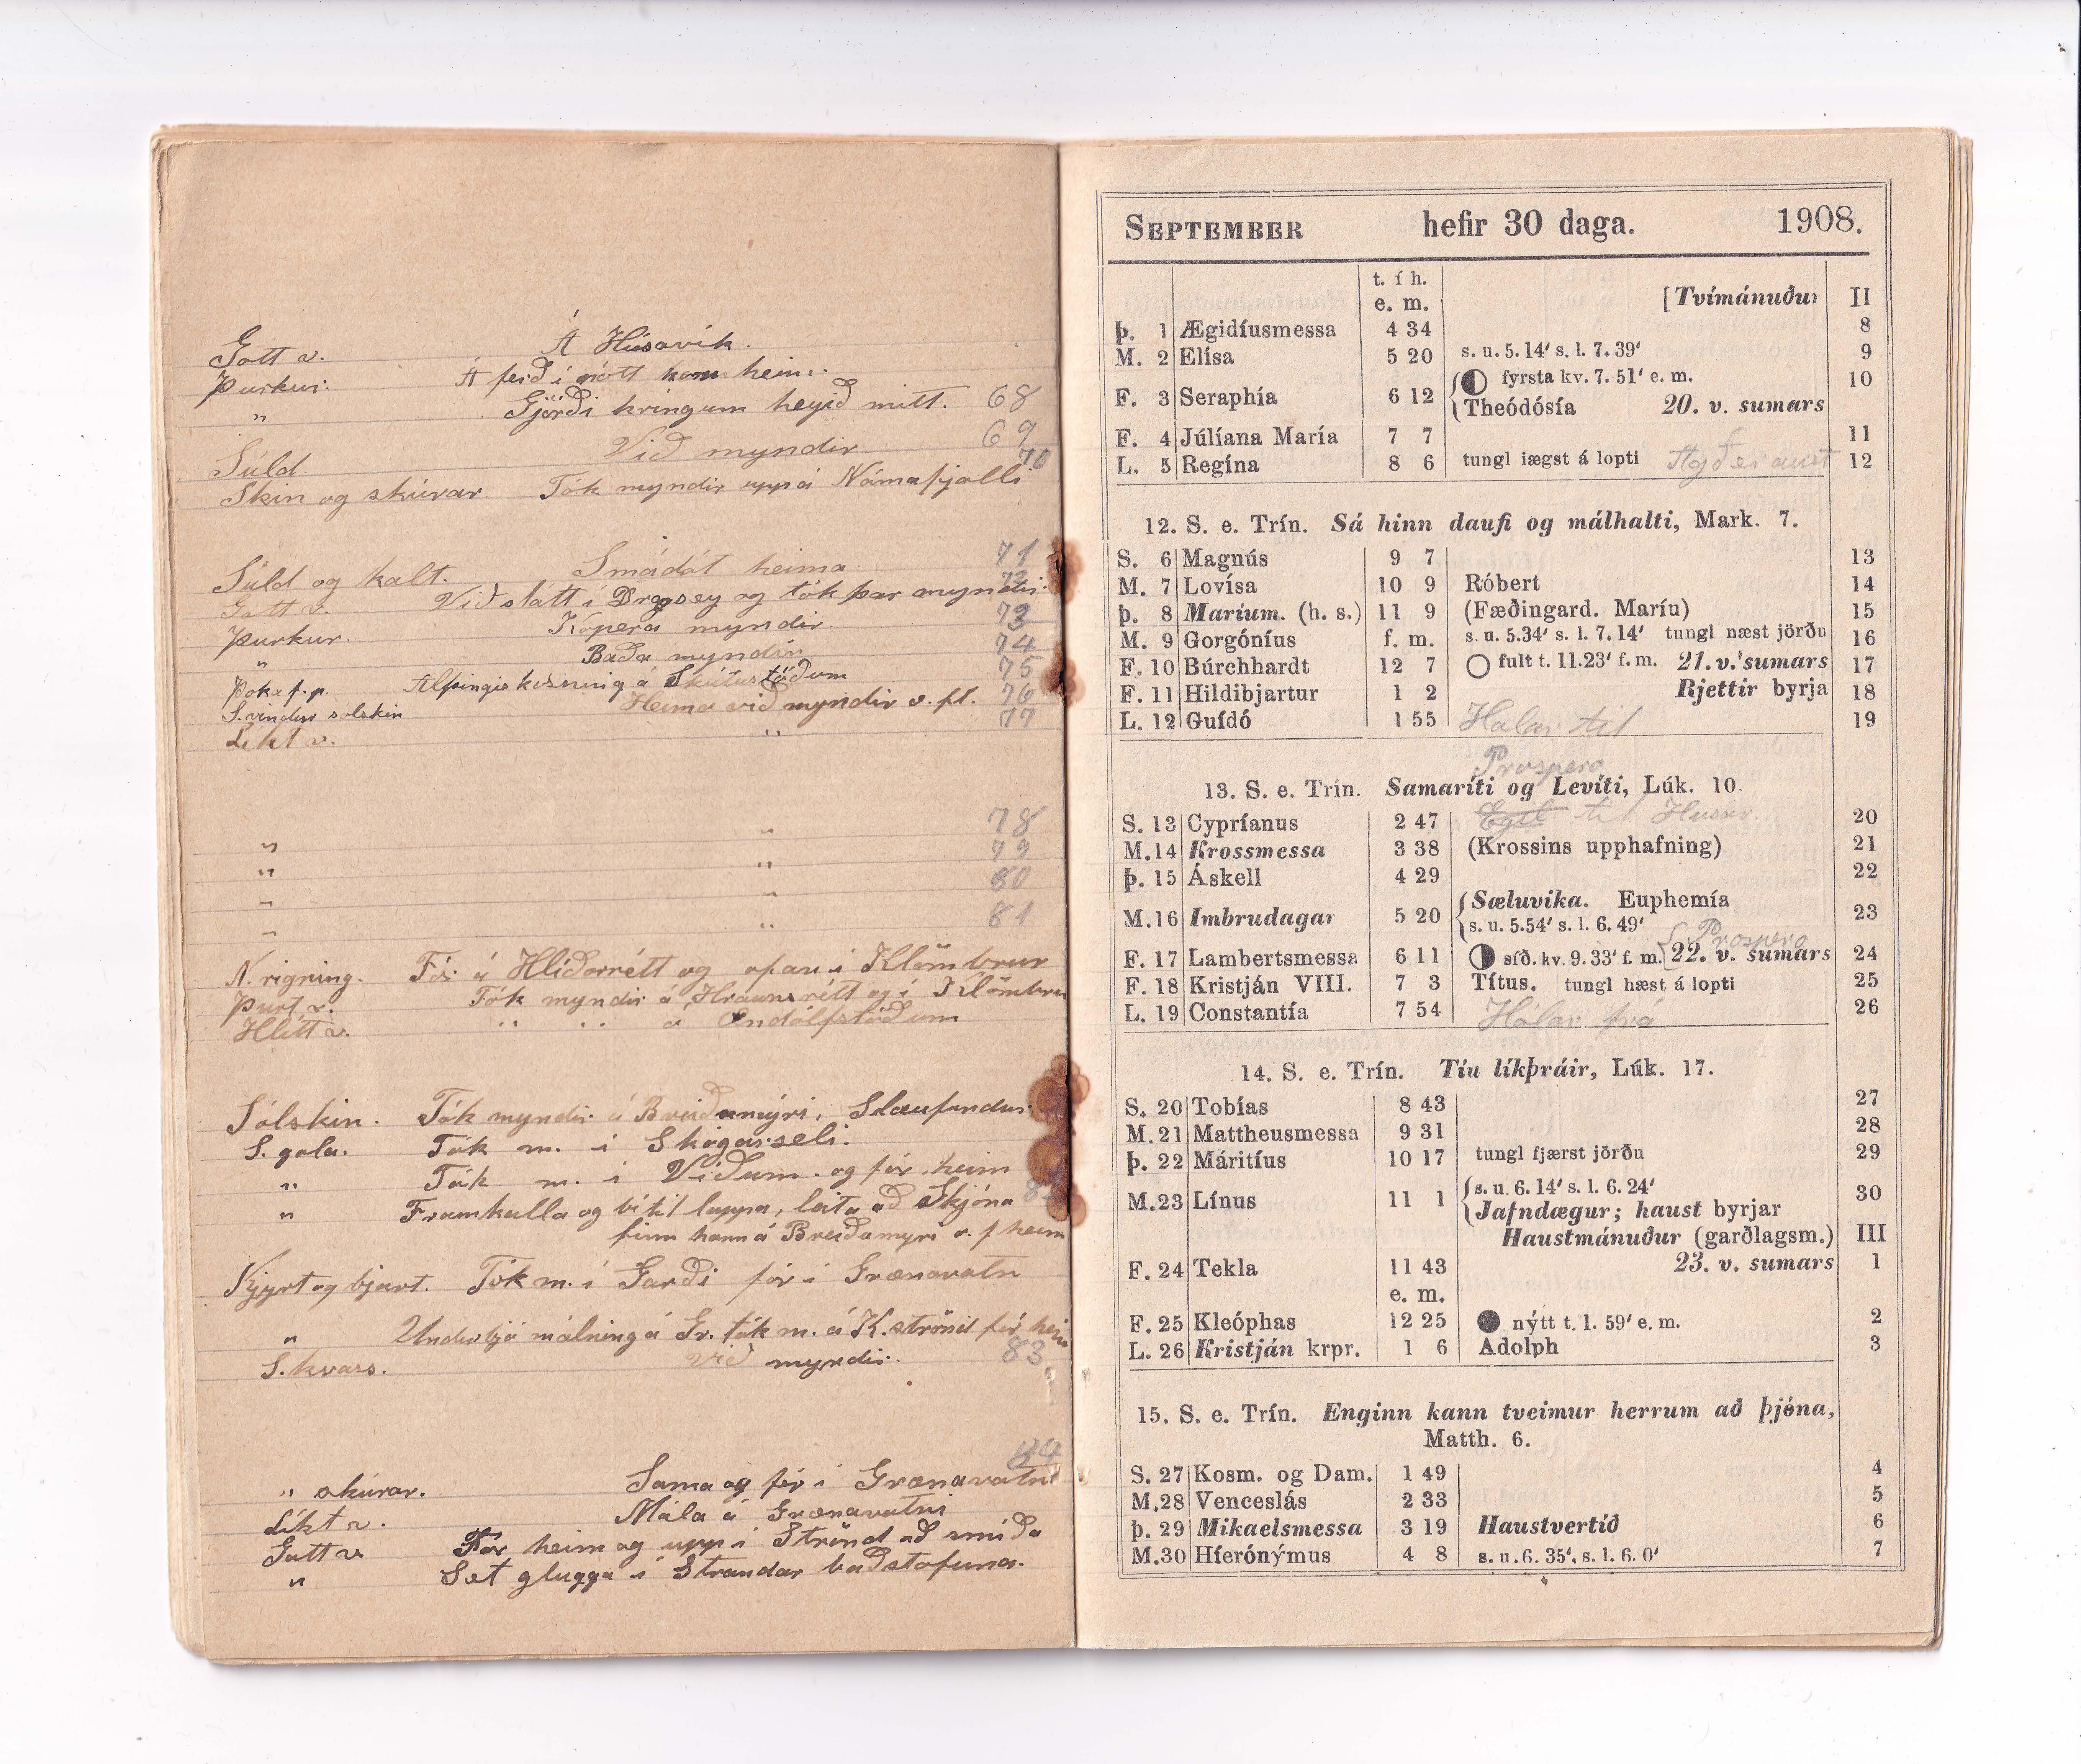 Gott v. Á Húsavík.
Þurkur. Á ferð í nótt kom heim.
„ Gjörði kringum heyið mitt. 68
Við myndir 69
Súld. 70
Skin og skúrar Tók myndir uppá Námafjalli
Súld og kalt. Smádót heima. 71
Gott v. Við slátt í Dragsey og tók þar myndir. 72
Þurkur. Kopera myndir. 73
„ Baða myndir 74
Þoka f.p. Alþingiskosning á Skútustöðum 75
S.vindur solskin Heima við myndir v. fl. 76
Líkt v. „ 77
„ „ 78
„ „ 79
„ „ 80
„ „ 81
N. rigning. Fór á Hlíðarrétt og ofan í Klömbrur
Þurt v. Tók myndir á Hraunsrétt og í Klömbru
Hlítt v. „ „ á Öndólfstöðum
Sólskin. Tók myndir á Breiðumýri,
S. gola. Tók m. í Skógarseli.
„ Tók m. í Víðum. og fór heim
„ Framkalla og bítil lappa, leita að Skjóna
finn hann á Breiðamyri v. f heim
Kyrt og bjart. Tók m. í Garði fór í Grænavatn
„ Undirbjó málning á Gr. tók m. á K.strönd fór heim
S. kvass. Við myndir. 83
84
„ skúrar. Sama og fór í Grænavatn
Líkt v. Mála á Grænavatni
Gott v Fór heim og upp í Strönd að smíða
„ Set glugga í Strandar baðstofuna.
SEPTEMBER hefir 30 daga. 1908.
t. í h.
e. m. [Tvímánuður II
Þ. 1 Ægidíusmessa 4 34 8
M. 2 Elísa 5 20 s. u. 5.14′ s. l. 7.39′ 9
F. 3 Seraphía 6 12 fyrsta kv. 7. 51′ e. m. 10
Theódósía 20. v. sumars
F. 4 Júlíana María 7 7 11
L. 5 Regína 8 6 tungl lægst á lopti 12
12. S. e. Trín. Sá hinn daufi og málhalti, Mark. 7.
S. 6 Magnús 9 7 13
M. 7 Lovísa 10 9 Róbert 14
Þ. 8 Maríum. (h. s.) 11 9 (Fæðingard. Maríu) 15
M. 9 Gorgóníus f. m. s. u. 5.34′ s. l. 7.14′ tungl næst jörðu 16
F. 10 Búrchhardt 12 7 fult t. 11.23′ f. m. 21. v. sumars 17
F. 11 Hildibjartur 1 2 Rjettir byrja 18
L. 12 Guídó 1 55 Hólar til 19
Prospero
13. S. e. Trín. Samaríti og Levíti, Lúk. 10.
S. 13 Cypríanus 2 47 Egil til Husav. 20
M. 14 Krossmessa 3 38 (Krossins upphafning) 21
Þ. 15 Áskell 4 29 22
M. 16 Imbrudagar 5 20 Sæluvika. Euphemía 23
s. u. 5.54′ s. l. 6. 49′
Prospero
F. 17 Lambertsmessa 6 11 síð. kv. 9. 33′ f. m. 22. v. sumars 24
F. 18 Kristján VIII. 7 3 Títus. tungl hæst á lopti 25
L. 19 Constantía 7 54 Hólar frá 26
14. S. e. Trín. Tíu líkþráir, Lúk. 17.
S. 20 Tobías 8 43 27
M. 21 Mattheusmessa 9 31 28
Þ. 22 Máritíus 10 17 tungl fjærst jörðu 29
M. 23 Línus 11 1 s. u. 6. 14′ s. l. 6. 24′ 30
Jafndægur; haust byrjar
Haustmánuður (garðlagsm.) III
F. 24 Tekla 11 43 23. v. sumars 1
e. m.
F. 25 Kleóphas 12 25 nýtt t. 1. 59′ e. m. 2
L. 26 Kristján krpr. 1 6 Adolph 3
15. S. e. Trín. Enginn kann tveimur herrum að þjóna,
Matth. 6.
S. 27 Kosm. og Dam. 1 49 4
M. 28 Venceslás 2 33 5
Þ. 29 Mikaelsmessa 3 19 Haustvertíð 6
M. 30 Híerónýmus 4 8 s. u. 6. 35′, s. l. 6. 0′ 7